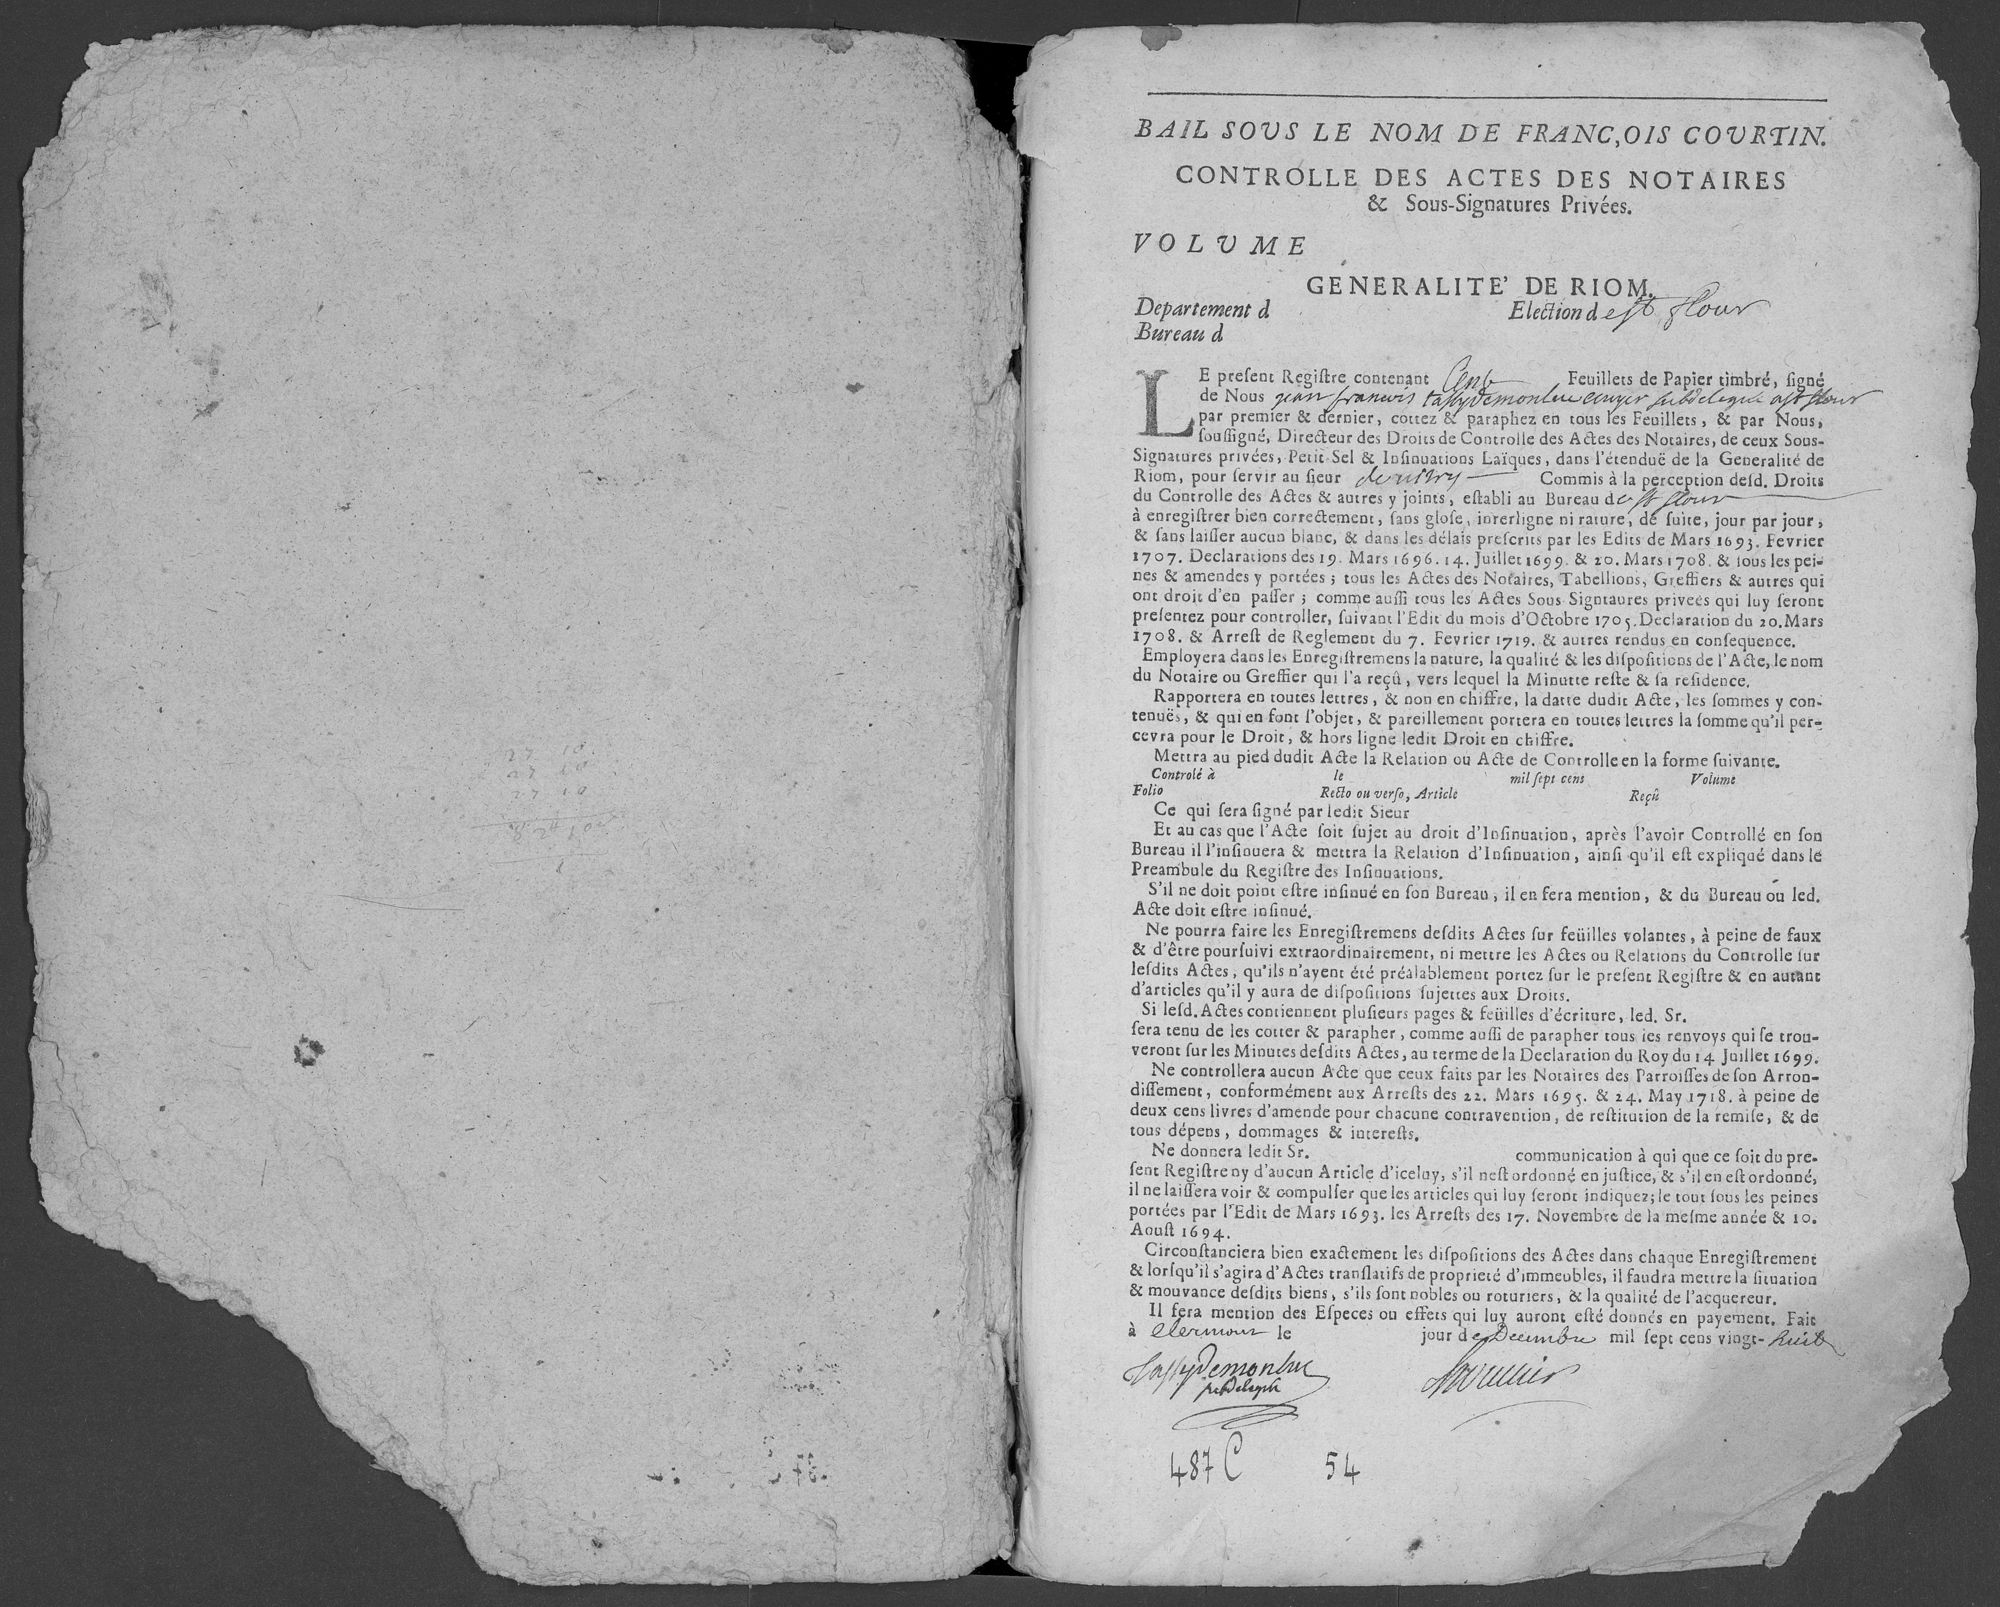 27 10
27 10
27 10
82 10
BAIL SOVS LE NOM DE FRANC,OIS COVRTIN.
CONTROLLE DES ACTES DES NOTAIRES
& Sous-Signatures Privées.
VOLVME
GENERALITE' DE RIOM.
Departement d Election d e St flour
Bureau d
LE preſent Regiſtre contenant Cent Feuillets de Papier timbré, ſigné
de Nous jean francois tassydemonluc subdelegue a St flour
par premier & dernier, cottez & paraphez en tous les Feuillets, & par Nous,
ſouſſigné, Directeur des Droits de Controlle des Actes des Notaires, de ceux Sous-
Signatures privées, Petit Sel & Inſinuations Laïques, dans l'étenduë de la Generalité de
Riom, pour ſervir au ſieur Commis à la perception deſd. Droits
du Controlle des Actes & autres y joints, eſtabli au Bureau de St flour
à enregiſtrer bien correctement, ſans gloſe, inrerligne ni rature, de ſuite, jour par jour,
& ſans laiſſer aucun blanc, & dans les délais preſcrits par les Edits de Mars 1693. Fevrier
1707. Declarations des 19. Mars 1696. 14. Juillet 1699. & 20. Mars 1708. & ſous les pei-
nes & amendes y portées; tous les Actes des Notaires, Tabellions, Greffiers & autres qui
ont droit d'en paſſer; comme auſſi tous les Actes Sous Signtaures privées qui luy ſeront
preſentez pour controller, ſuivant l'Edit du mois d'Octobre 1705. Declaration du 20. Mars
1708. & Arreſt de Reglement du 7. Fevrier 1719. & autres rendus en conſequence.
Employera dans les Enregiſtremens la nature, la qualité & les diſpoſitions de l'Acte, le nom
du Notaire ou Greffier qui l'a reçû, vers lequel la Minutte reſte & ſa reſidence.
Rapportera en toutes lettres, & non en chiffre, la datte dudit Acte, les ſommes y con-
tenuës, & qui en font l'objet, & pareillement portera en toutes lettres la ſomme qu'il per-
cevra pour le Droit, & hors ligne ledit Droit en chiffre.
Mettra au pied dudit Acte la Relation ou Acte de Controlle en la forme ſuivante.
Controlé à le mil ſept cens Volume
Folio Recto ou verſo, Article Reçû
Ce qui ſera ſigné par ledit Sieur
Et au cas que l'Acte ſoit ſujet au droit d'Inſinuation, après l'avoir Controllé en ſon
Bureau il l'inſinuera & mettra la Relation d'Inſinuation, ainſi qu'il eſt expliqué dans le
Preambule du Regiſtre des Inſinuations.
S'il ne doit point eſtre inſinué en ſon Bureau, il en fera mention, & du Bureau où led.
Acte doit eſtre inſinué.
Ne pourra faire les Enregiſtremens deſdits Actes ſur feüilles volantes, à peine de faux
& d'être pourſuivi extraordinairement, ni mettre les Actes ou Relations du Controlle ſur
leſdits Actes, qu'ils n'ayent été préalablement portez ſur le preſent Regiſtre & en autant
d'articles qu'il y aura de diſpoſitions ſujettes aux Droits.
Si leſd. Actes contiennent pluſieurs pages & feüilles d'écriture, led. Sr.
ſera tenu de les cotter & parapher, comme auſſi de parapher tous les renvoys qui ſe trou-
veront ſur les Minutes deſdits Actes, au terme de la Declaration du Roy du 14 Juillet 1699.
Ne controllera aucun Acte que ceux faits par les Notaires des Parroiſſes de ſon Arron-
diſſement, conformément aux Arreſts des 22. Mars 1695. & 24. May 1718. à peine de
deux cens livres d'amende pour chacune contravention, de reſtitution de la remiſe, & de
tous dépens, dommages & intereſts.
Ne donnera ledit Sr. communication à qui que ce ſoit du pre-
ſent Regiſtre ny d'aucun Article d'iceluy, s'il neſt ordonné en juſtice, & s'il en eſt ordonné,
il ne laiſſera voir & compulſer que les articles qui luy ſeront indiquez; le tout ſous les peines
portées par l'Edit de Mars 1693. les Arreſts des 17. Novembre de la meſme année & 10.
Aouſt 1694.
Circonſtanciera bien exactement les diſpoſitions des Actes dans chaque Enregiſtrement
& lorſqu'il s'agira d'Actes tranſlatifs de proprieté d'immeubles, il faudra mettre la ſituation
& mouvance deſdits biens, s'ils ſont nobles ou roturiers, & la qualité de l'acquereur.
Il fera mention des Eſpeces ou effets qui luy auront eſté donnés en payement. Fait
à clermont le jour de Decembre mil ſept cens vingt-huit
Tassydemonluc
subdelegue
487 C 54